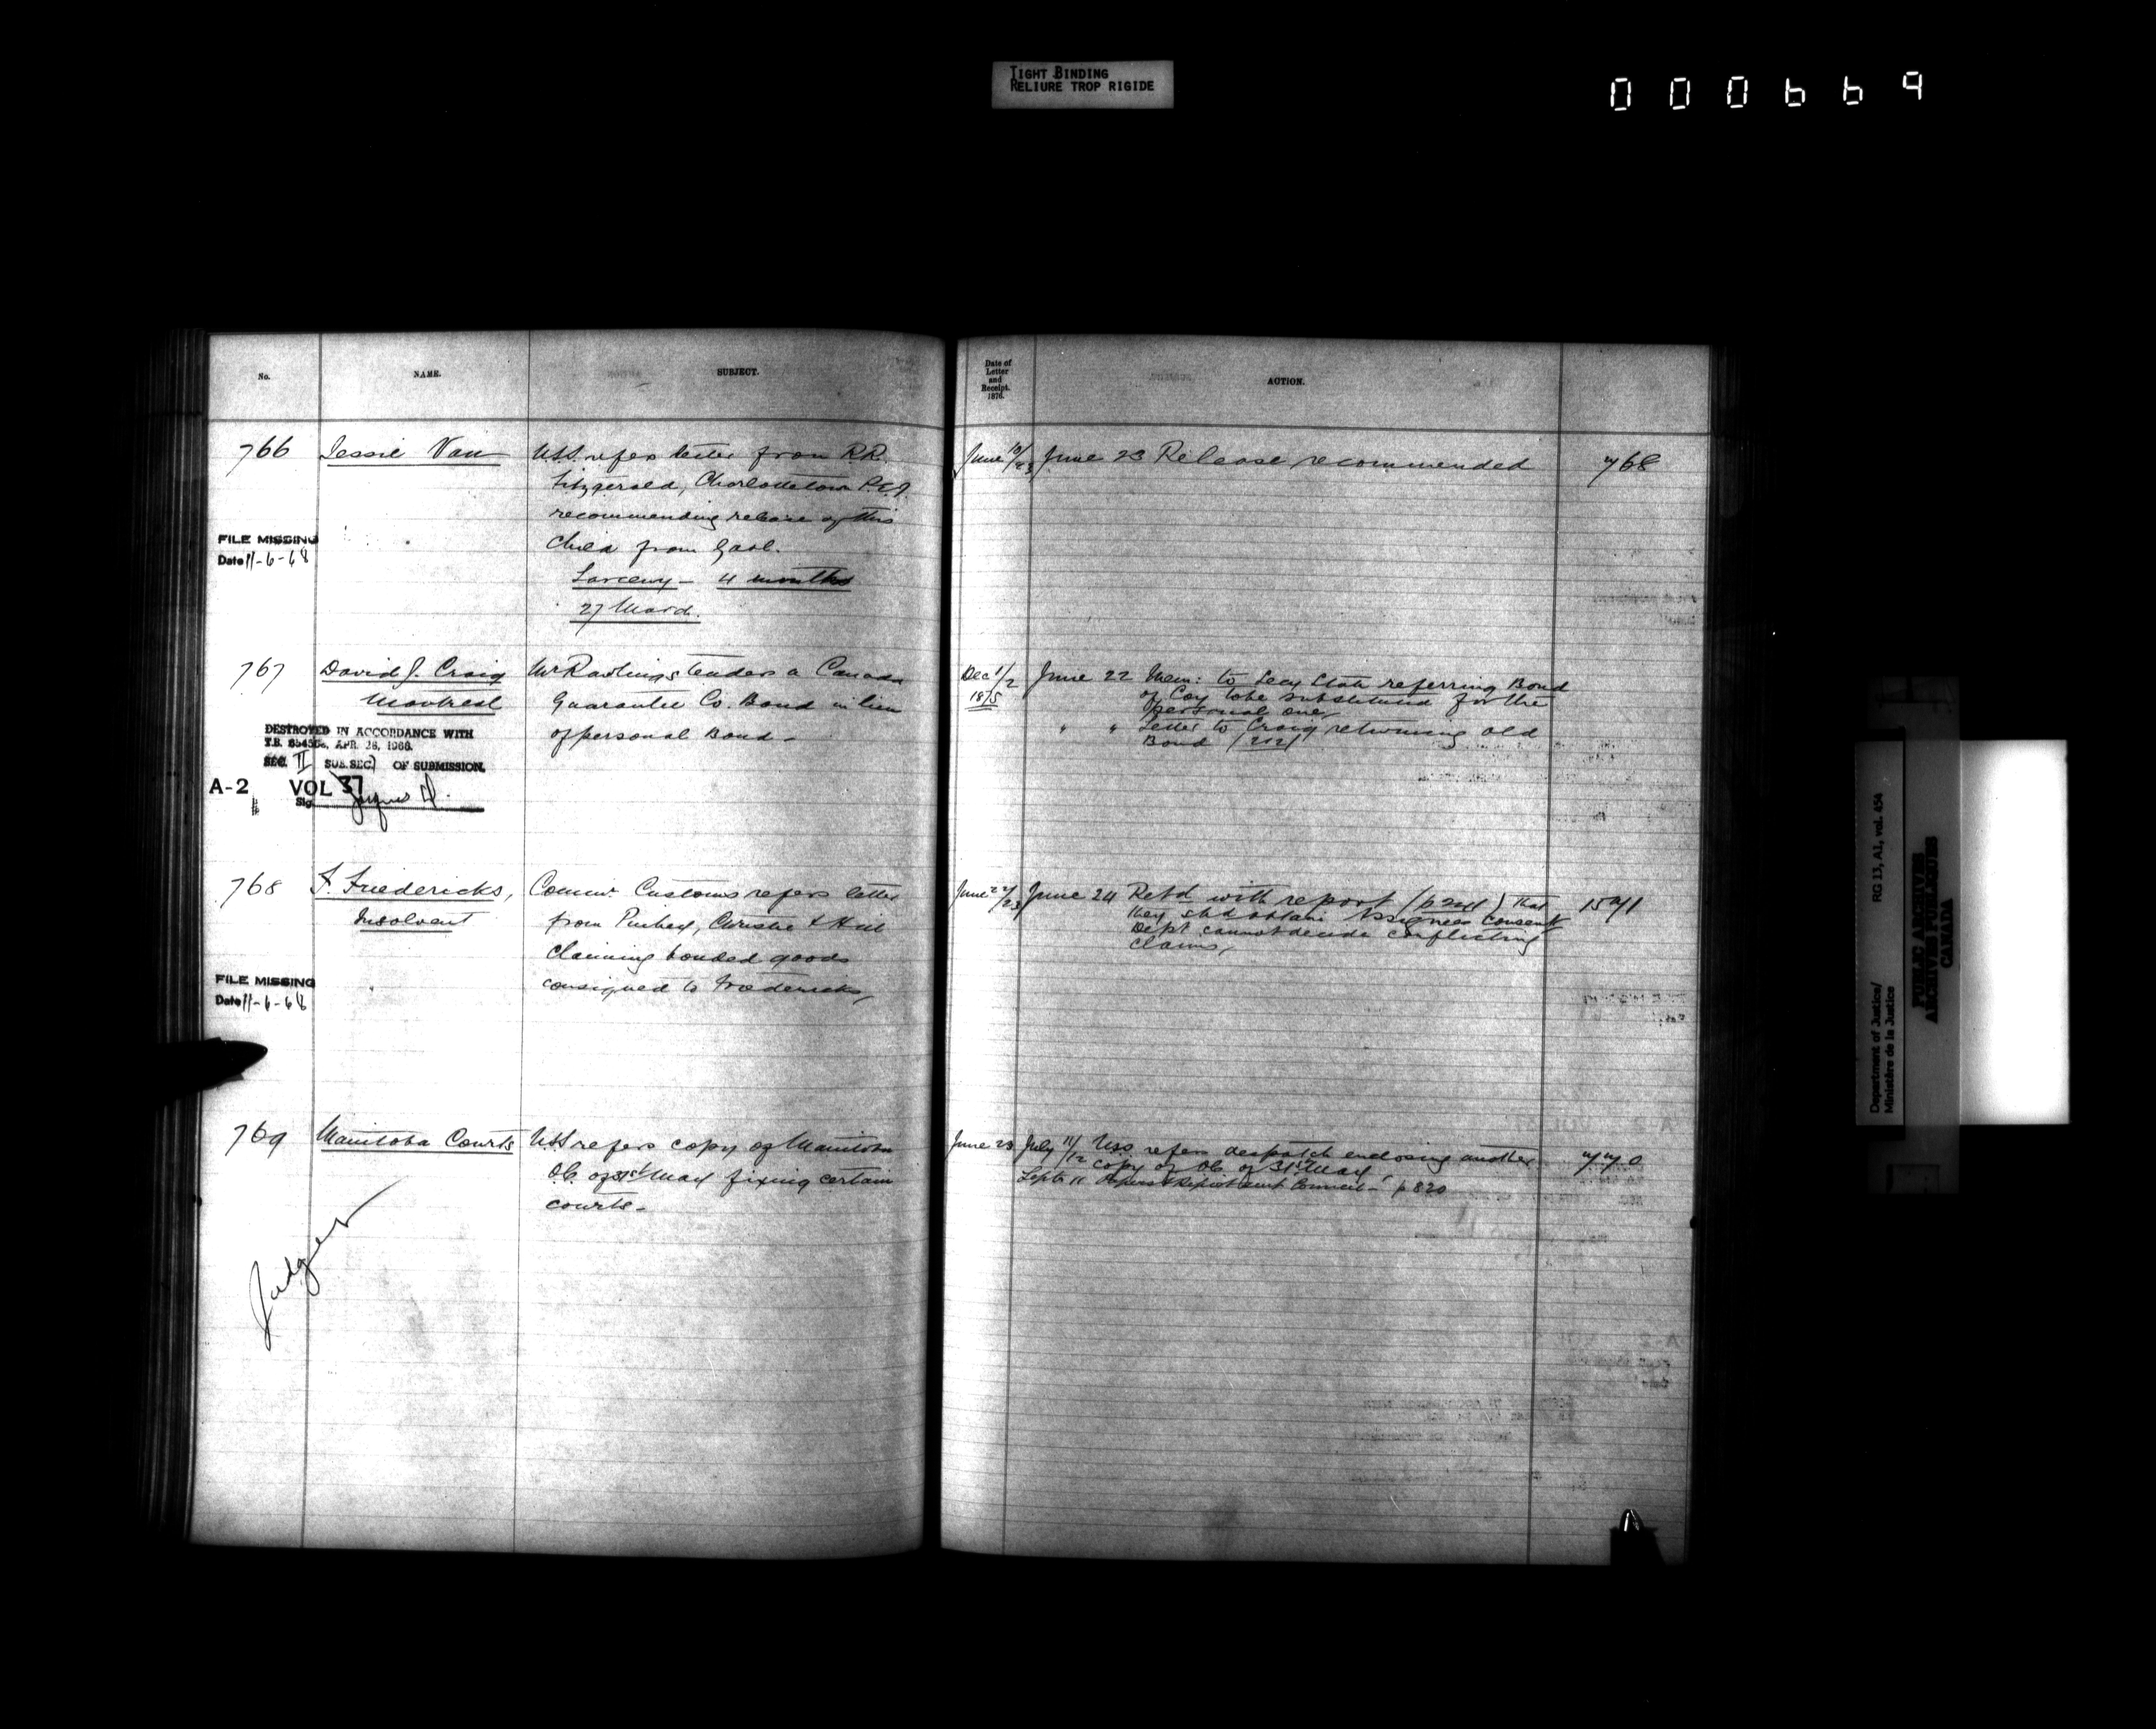 TIGHT BINDING
RELIURE TROP RIGIDE
000669
No.
NAME.
SUBJECT.
Date of
Letter
and
Receipt.
1876.
ACTION.
766
Jessie Van
USS. refers letter from R.R.
Fitzgerald, Charlottetown P.E.I.
recommending release of this
Child from Gaol.
Larceny - 4 months
27 March.
FILE MISSING
Date 11-6-68
June 10/23
June 23 Release recommended
768
767
David J. Craig
Montreal
Mr Rawlings tenders a Canada
Guarantee Co. Bond in lieu
of personal Bond -
DESTROYED IN ACCORDANCE WITH
T.B. APR. 26, 1966.
SEC. II SUB. SEC. OF SUBMISSION.
A-2 VOL 37
Sig.
Dec 1/2
1875
June 22 Mem: to Secy State referring Bond
of Coy to be substituted for the
personal one,
" " Letter to Craig returning old
Bond
768
F. Friedericks,
Insolvent
Commr. Customs refers letter
from Pinhey, Christie & Hill
Claiming bonded goods
consigned to Fredericks,
FILE MISSING
Date 11-6-68
June 22/23
June 24 Retd with report that
they shd obtain Assignees Consent
Dept cannot decide conflicting
claims,
1571
769
Manitoba Courts
USS refers copy of Manitoba
O.C. of 31st May fixing certain
courts -
Judges
June 23
July 11/12 USS. refers despatch enclosing another
copy of O.C. of 31st May
Septr 11 Papers & Report sent Council - p 820
770
Department of Justice/
Ministère de la Justice
RG 13, A1, vol. 454
PUBLIC ARCHIVES
ARCHIVES PUBLIQUES
CANADA